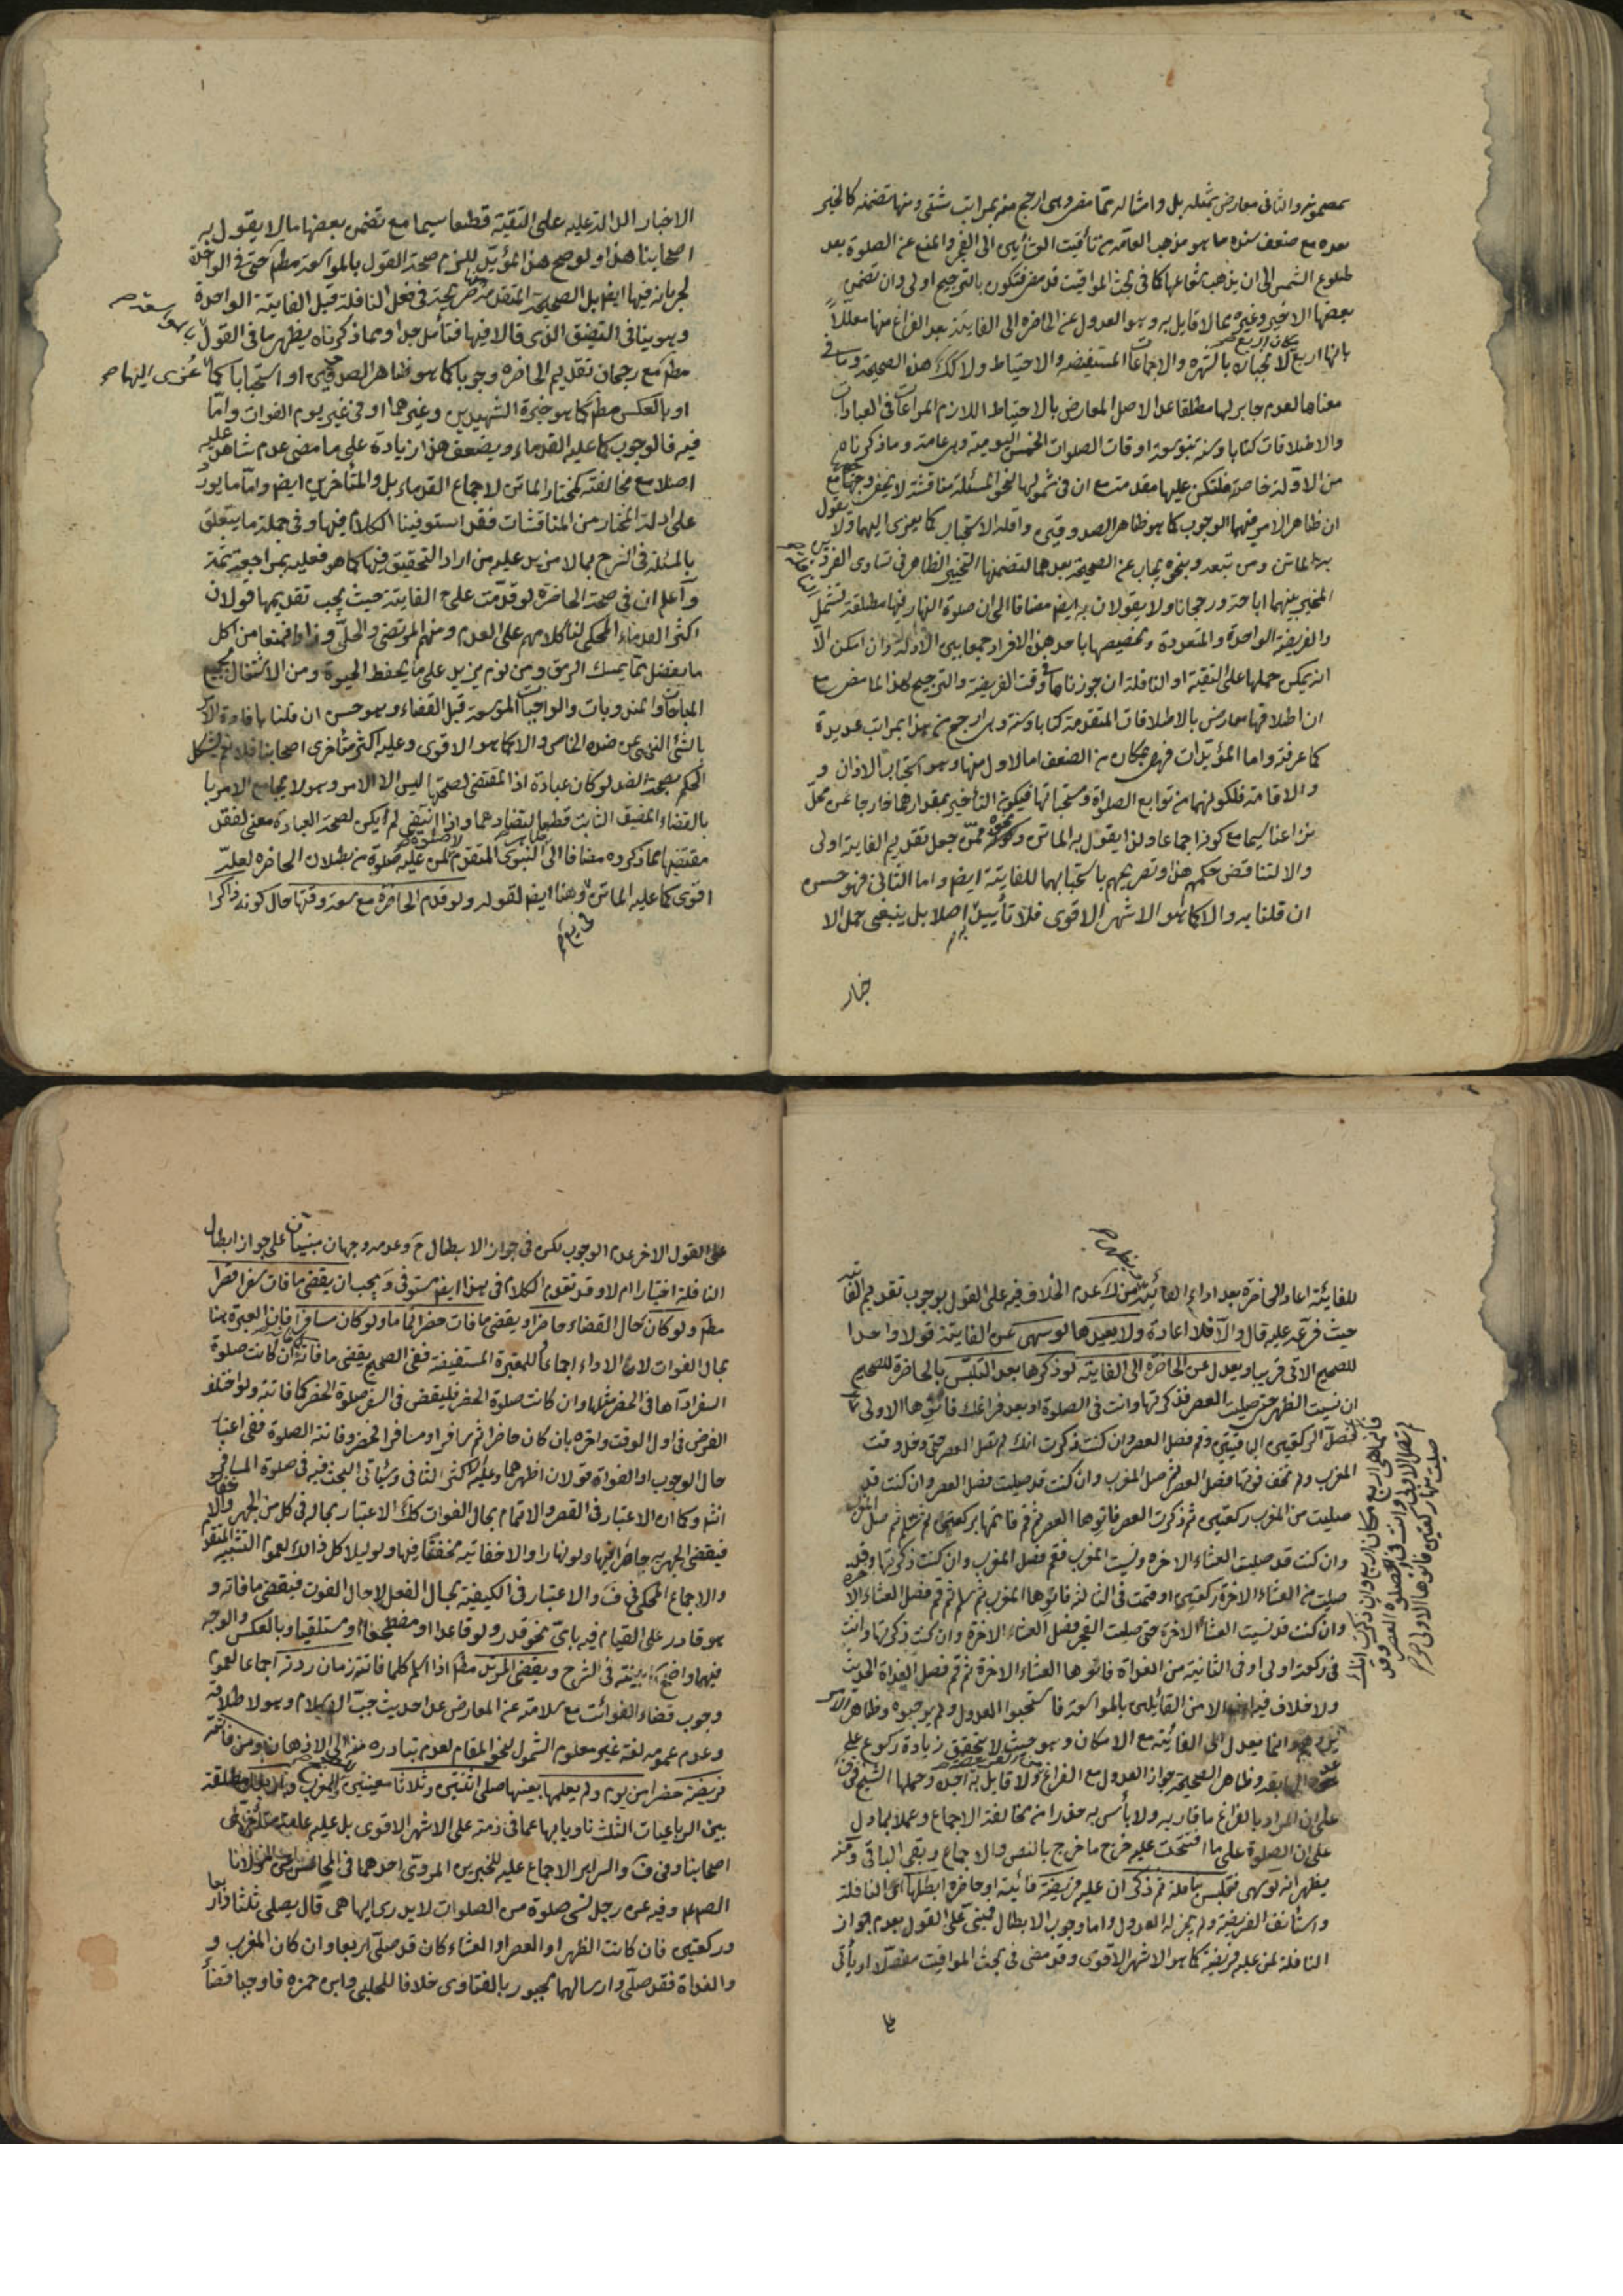 بمضمونه والثاني معارض بمثله بل وامثاله مما مضى وهي ارجح منه بمراتب شتى ومنها تضمنه كالخبر
بعده مع ضعف سنده ما هو مذهب العامة من تأقيت العشائين الى الفجر والمنع عن الصلوة بعد
طلوع الشمس الى ان يذهب شعاعها كما في بحث المواقيت قد مضى فتكون بالترجيح اولى وان تضمن
بعضها الاخير وغيره بما لا قايل به وهو العدول عن الحاضرة الى الفايتة بعد الفراغ منها معللاً
بانها اربع مكان اربع لانجباره بالشهرة والاجماعات المستفيضة والاحتياط ولا كك هذه الصحيحة وما في
معناها لعدم جابر لها مطلقا عدا الاصل المعارض بالاحتياط اللازم المراعات في العبادات
والاطلاقات كتابا وسنة بتوسعة اوقات الصلوات الخمس اليومية وهي عامة وما ذكرناه
من الادلة خاصة فلتكن عليها مقدمة مع ان في شمولها لنحو المسئلة مناقشة لا يخفى وجهها مع
ان ظاهر الامر فيهما الوجوب كما هو ظاهر الصدوقين واقله الاستحباب كما يعزى اليهما ولا يقول
به الماتن ومن تبعه وبنحوه يجاب عن الصحيحة بعدهما لتضمنها التخيير الظاهر في تساوى الفردين
المخير بينهما اباحة ورجحانا ولا يقولان به ايضا مضافا الى ان صلوة النهار فيها مطلقة تشمل
والفريضة الواحدة والمتعددة وتخصيصها باحد هذه الافراد جمعا بين الادلة وان امكن الا
انه يمكن حملها على التقية او النافلة ان جوزناها في وقت الفريضة والترجيح لهذا لما مضى مع
ان اطلاقها معارض بالاطلاقات المتقدمة كتابا وسنة وهي ارجح من هذا بمراتب عديدة
كما عرفته واما المؤيدات فهي بمكان من الضعف اما الاول منها وهو استحباب الاذان و
والاقامة فلكونهما من توابع الصلوة ومستحباتها فيكون التأخير بمقدارهما خارجا عن محل
نزاعنا سيما مع كونه اجماعا ولذا يقول به الماتن ونحوه ممن جعل تقديم الفايتة اولى
والا لتناقض حكمهم هذا وتصريحهم باستحبابهما للفايتة ايضا واما الثاني فهو حسن
ان قلنا به والا كما هو الاشهر الاقوى فلا تأييد به اصلا بل ينبغي حمل الا
خبار
الاخبار الدالة عليه على التقية قطعا سيما مع تضمن بعضها ما لا يقول به
اصحابنا هذا ولو صح هذا المؤيد للزم صحة القول بالمواسعة مطم حتى في الواحدة
لجريانه فيها ايضا بل الصحيحة المتقدمة صريحة في فعل النافلة قبل الفايتة الواحدة
وهو ينافي التضيق الذى قالا فيها فتأمل جدا ومما ذكرناه يظهر ما في القول بالمواسعة
مطم مع رجحان تقديم الحاضرة وجوبا كما هو ظاهر الصدوقين او استحبابا كما عزى اليهما
او بالعكس مطم كما هو خيرة الشهيدين وغيرهما او في غير يوم الفوات واما
فيه فالوجوب كما عليه القدماء ويضعف هذا زيادة على ما مضى عدم شاهد عليه
اصلا مع مخالفته كمختار الماتن لاجماع القدماء بل والمتأخرين ايضا واما ما يورد
على ادلة المختار من المناقشات فقد استوفينا الكلام فيها وفي جملة ما يتعلق
بالمسئلة في الشرح بما لا مزيد عليه من اراد التحقيق فيها كما هو فعليه بمراجعته ثمة
واعلم ان في صحة الحاضرة لو قدمت على الفايتة حيث يجب تقديمها قولان
اكثر القدماء المحكي لنا كلامهم على العدم ومنهم المرتضى والحلي وزادا فمنعا من اكل
ما يفضل عما يمسك الرمق ومن نوم يزيد على ما يحفظ الحيوة ومن الاشتغال بجميع
المباحات والمندوبات والواجبات الموسعة قبل القضاء وهو حسن ان قلنا بافادة الامر
بالشئ النهى عن ضده الخاص والا كما هو الاقوى وعليه اكثر متأخرى اصحابنا فلا نعم يشكل
الحكم بصحة الضد لو كان عبادة اذ المقتضى لصحتها ليس الا الامر وهو لا يجامع الامر با
بالقضاء المضيق الثابت قطعا لتضادهما واذا انتفى لم يكن لصحة العبادة معنى لفقد
مقتضيها مما ذكروه مضافا الى النبوي المتقدم لا صلوة لمن عليه صلوة من بطلان الحاضرة لعله
اقوى كما عليه الماتن هنا ايضا لقوله ولو قدم الحاضرة مع سعة وقتها حال كونه ذاكرا
للفايتة اعاد الحاضرة بعد اداء الفائتة من عدم الخلاف فيه على القول بوجوب تقديم الفايتة
حيث فرعه عليه قال والا فلا اعادة ولا يعيدها لو سهى عن الفايتة قولا واحدا
للصحيح الاتى قريبا ويعدل عن الحاضرة الى الفايتة لو ذكرها بعد التلبس بالحاضرة للصحيح
ان نسيت الظهر حتى صليت العصر فذكرتها وانت في الصلوة او بعد فراغك فانوها الاولى ثم
صل العصر فانما هي اربع مكان اربع وان ذكرت انك
لم تصل الاولى وانت في الصلوة العصر وقد
صليت منها ركعتين فانوها الاولى
فصل الركعتين الباقيتين وقم فصل العصر وان كنت ذكرت انك لم تصل العصر حتى دخل وقت
المغرب ولم تخف فوتها فصل العصر ثم صل المغرب وان كنت قد صليت فصل العصر وان كنت قد
صليت من المغرب ركعتين ثم ذكرت العصر فانوها العصر ثم قم فاتمها بركعتين ثم سلم ثم صل المغرب
وان كنت قد صليت العشاء الاخرة ونسيت المغرب فقم فصل المغرب وان كنت ذكرتها وقد
صليت من العشاء الاخرة ركعتين او قمت في الثالثة فانوها المغرب ثم سلم ثم قم فصل العشاء الاخرة
وان كنت قد نسيت العشاء الاخرة حتى صليت الفجر فصل العشاء الاخرة وان كنت ذكرتها وانت
في ركعة اولى او في الثانية من الغداة فانوها العشاء الاخرة ثم قم فصل الغداة الحديث
ولا خلاف فيه الا من القائلين بالمواسعة فاستحبوا العدول ولم يوجبوه وظاهر الامر
وانما يعدل الى الفائتة مع الامكان وهو حيث لا يتحقق زيادة ركوع على
عدد السابقة وظاهر الصحيحة جواز العدول مع الفراغ ولا قايل به اجده وحملها الشيخ في ف
على ان المراد بالفراغ ما قاربه ولا بأس به حذرا من مخالفة الاجماع وعملا بما دل
على ان الصلوة على ما افتتحت عليه خرج ما خرج بالنص والاجماع وبقى الباقي ومنه
يظهر انه لو سهى فتلبس بنافلة ثم ذكر ان عليه فريضة فائتة او حاضرة ابطلها اى النافلة
واستانف الفريضة ولم يجز له العدول واما وجوب الابطال فمبنى على القول بعدم جواز
النافلة لمن عليه فريضة كما هو الاشهر الاقوى وقد مضى في بحث المواقيت مفصلا ويأتى
على القول الاخر عدم الوجوب لكن في جواز الابطال ح وعدمه وجهان مبنيان على جواز ابطال
النافلة اختيارا ام لا وقد تقدم الكلام في هذا ايضا مستوفى ويجب ان يقضى ما فات سفرا قصرا
مطم ولو كان حال القضاء حاضرا ويقضى ما فات حضرا تماما ولو كان مسافرا فان العبرة هنا
بحال الفوات لا الاداء اجماعا للمعتبرة المستفيضة ففي الصحيح يقضى ما فاته كما فاته ان كانت صلوة
السفر اداها في الحضر مثلها وان كانت صلوة الحضر فليقض في السفر صلوة الحضر كما فاتته ولو اختلف
الفرض في اول الوقت واخره بان كان حاضرا ثم سافر او مسافرا فحضر وفاتته الصلوة ففي اعتبار
حال الوجوب او الفوات قولان اظهرهما وعليه الاكثر الثاني وسيأتى البحث فيه في صلوة المسافر
انش وكما ان الاعتبار في القصر والاتمام بحال الفوات كك الاعتبار بحاله في كل من الجهر والاخفات
فيقضى الجهرية جاهرا فيها ولو نهارا والاخفاتية مخفتا فيها ولو ليلا كل ذلك لعموم التشبيه المتقدم
والاجماع المحكي في ف والاعتبار في الكيفية بحال الفعل لا حال الفوت فيقضى ما فاته و
هو قادر على القيام فيه باى نحو قدر ولو قاعدا او مضطجعا او مستلقيا وبالعكس والوجه
فيهما واضح بينته في الشرح ويقضى المرتد مطم اذا اسلم كلما فاتته زمان ردته اجماعا لعموم
وجوب قضاء الفوائت مع سلامته عن المعارض عدا حديث جب الاسلام وهو لا طلاقه
وعدم عمومه لغة غير معلوم الشمول لنحو المقام لعدم تبادره منه الى الاذهان ومن فاتته
فريضة حضرا من يوم ولم يعلمها بعينها صلى اثنتين وثلاثا معينتين للصبح والمغرب واربعا مطلقة
بين الرباعيات الثلث ناويا بها عما في ذمته على الاشهر الاقوى بل عليه عامة متأخرى
اصحابنا وفي ف والسرائر الاجماع عليه للخبرين المروى احدهما في المحاسن عن مولانا
الصم وفيه عن رجل نسى صلوة من الصلوات لا يدرى ايها هى قال يصلى ثلثا واربعا
وركعتين فان كانت الظهر او العصر او العشاء كان قد صلى اربعا وان كان المغرب و
والغداة فقد صلى وارسالهما مجبور بالفتاوى خلافا للحلبى وابن حمزه فاوجبا قضاء